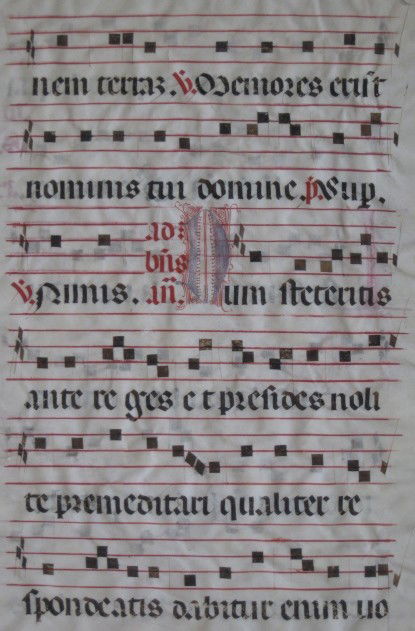 nem terraz. V. Memores erūt
nominis tui domine. p. Sup.
ad s
V. Nimis. bn̄s an̄. Dum steteritis
ante re ges e t presides noli
te premeditari qualiter re
spondeatis dabitur enim uo